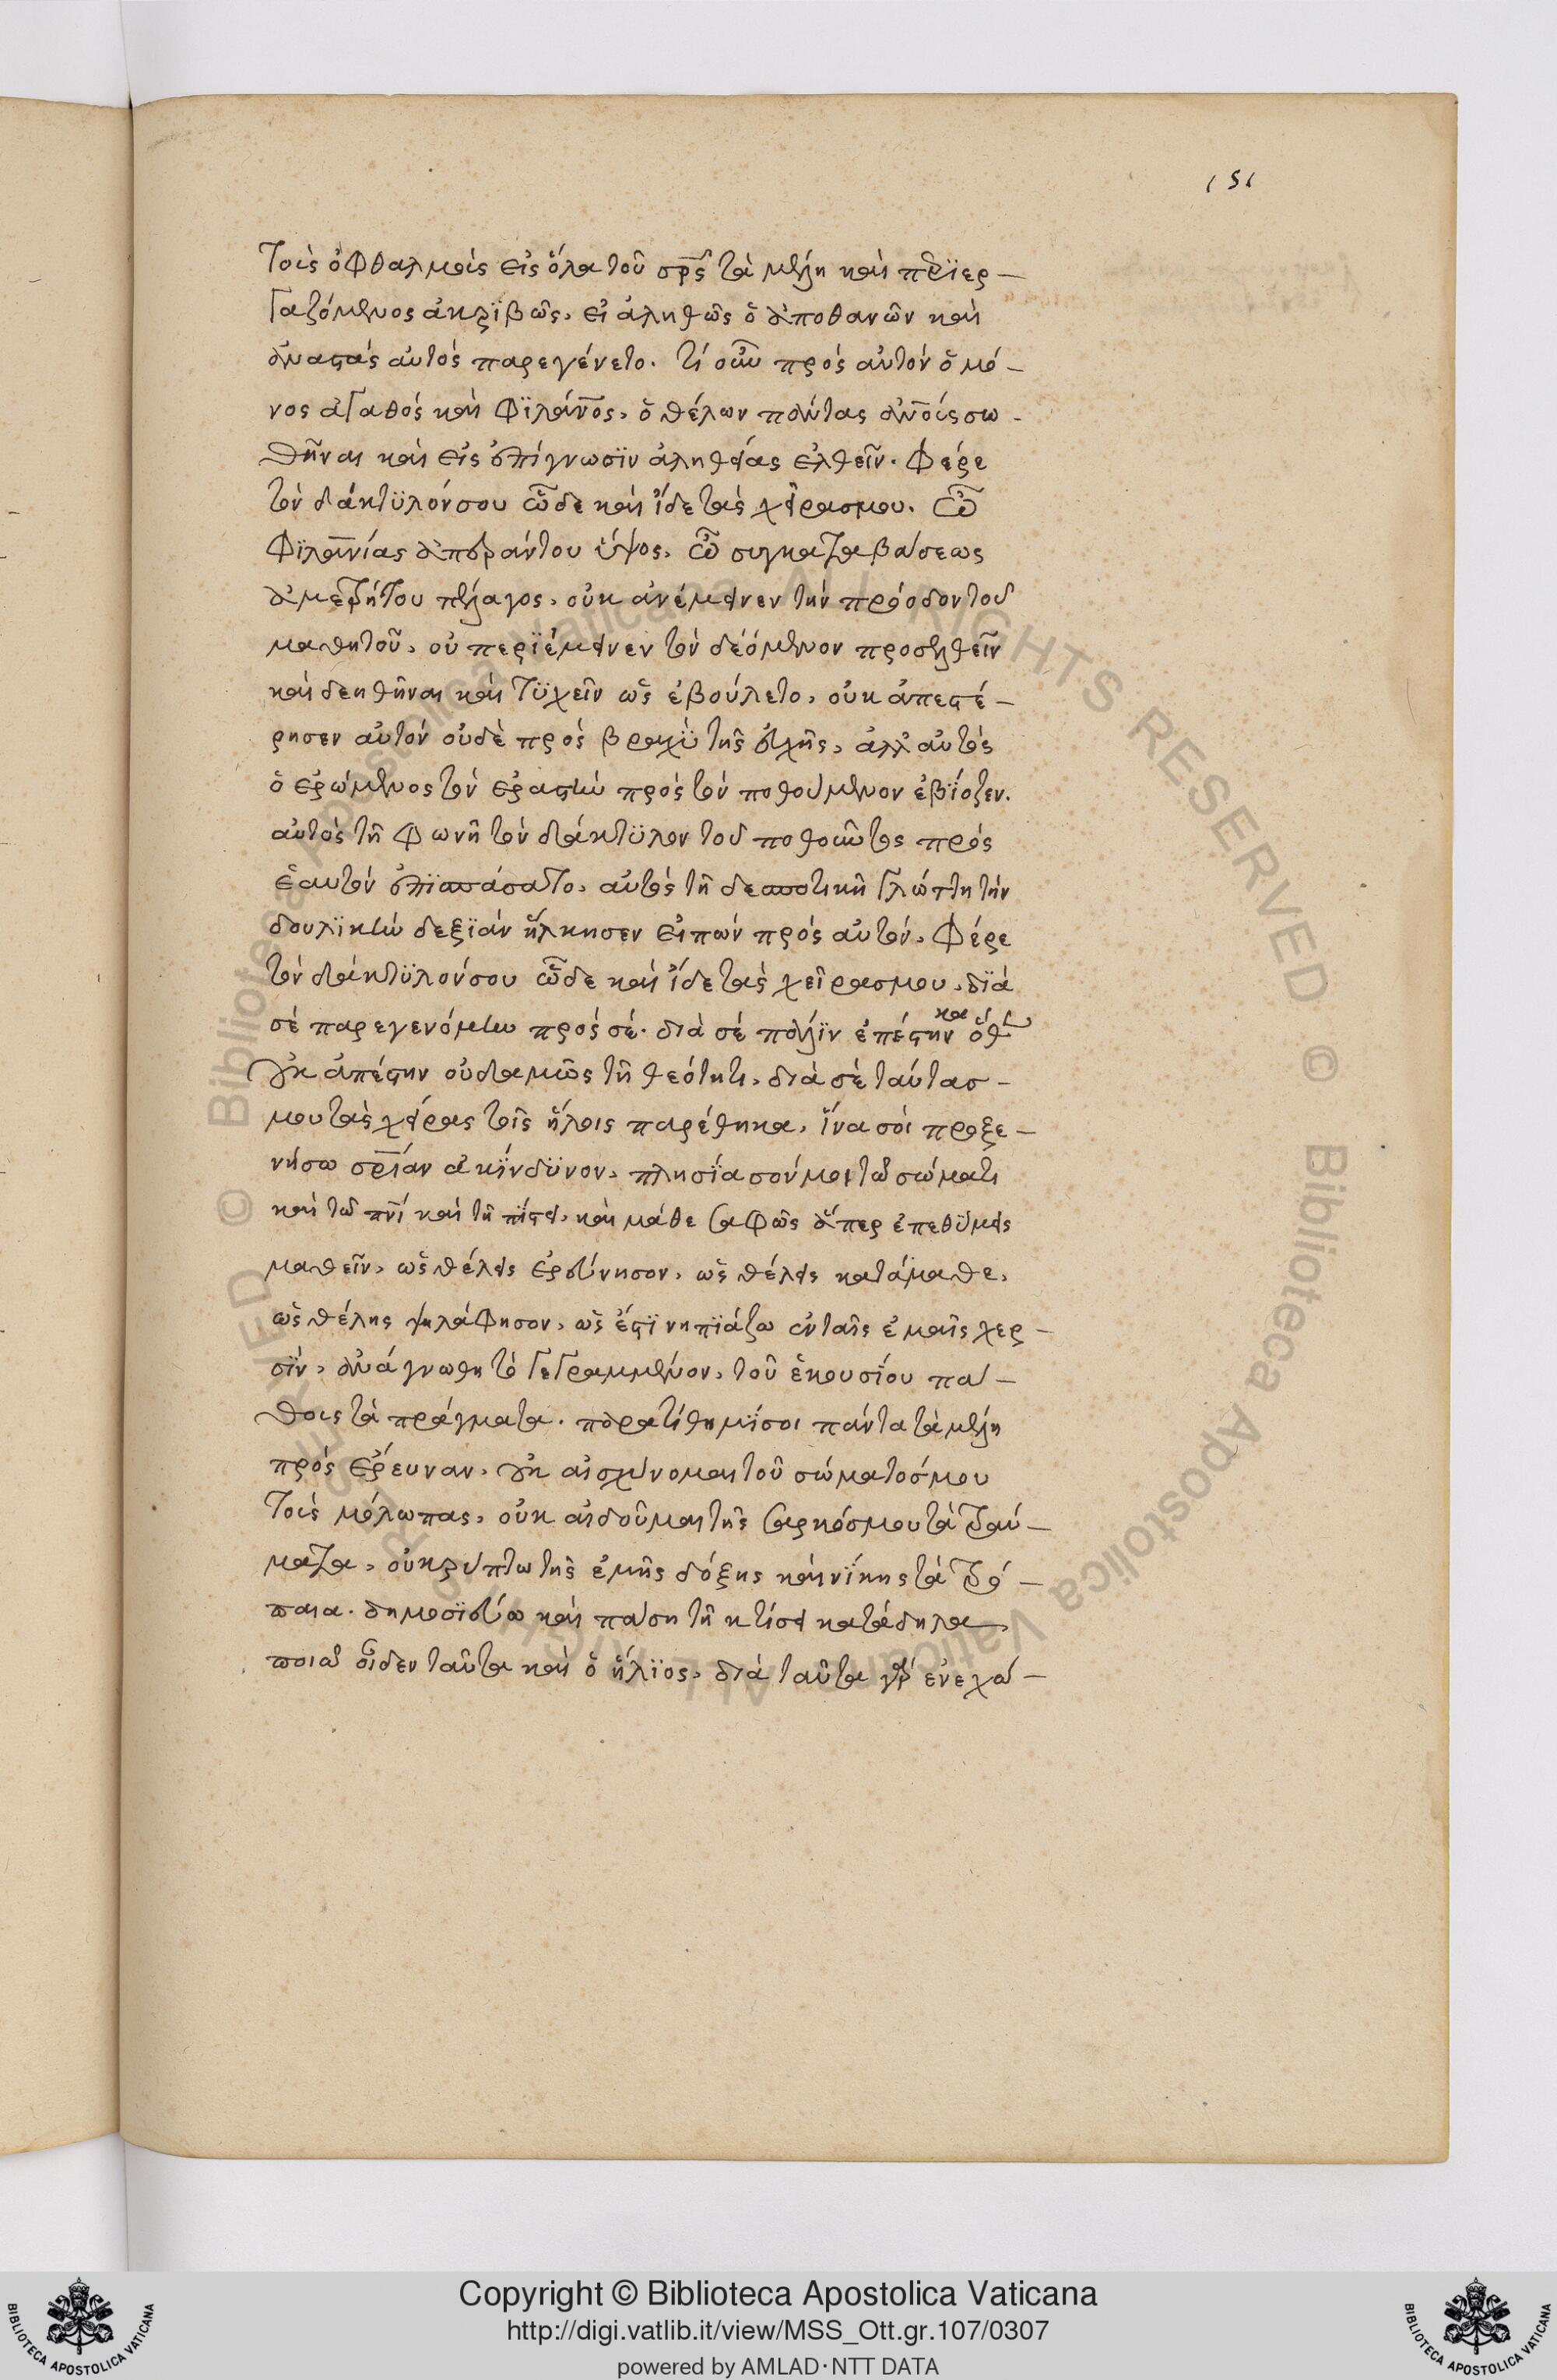 151
τοῖς ὀφθαλμοῖς εἰς ὅλα τοῦ σρ̅ς τὰ μέλη καὶ περϊερ–
γαζόμενος ἀκρϊβῶς, εἰ ἀληθῶς ὁ ἀποθανῶν καὶ
ἀναστὰς αὐτὸς παρεγένετο. τί οὖν πρὸς αὐτὸν ὁ μό–
νος ἀγαθὸς καὶ φϊλάν̅ος, ὁ θέλων πάντας ἀν̅οις σω–
θῆναι καὶ εἰς ἐπίγνωσϊν ἀληθείας ἐλθεῖν. φέρε
τὸν δάκτϋλόν σου ὧδε καὶ ἴδε τὰς χεῖρας μου. ὢ
φϊλαν̅ίας ἀπεράντου ὕψος, ὢ συγκαταβάσεως
ἀμετρήτου πέλαγος, οὐκ ἀνέμεινεν τὴν πρόοδον τοῦ
μαθητοῦ, οὐ περϊέμεινεν τὸν δεόμενον προσελθεῖν
καὶ δεηθῆναι καὶ τϋχεῖν ὡς ἐβούλετο, οὐκ ἀπεστέ–
ρησεν αὐτὸν οὐδὲ πρὸς βραχϋ τῆς εὐχῆς, ἀλλ' αὐτὸς
ὁ ἐρώμενος τὸν ἐραστὴν πρὸς τὸν ποθούμενον ἐβϊάζεν.
αὐτὸς τῆ φωνῆ τὸν δάκτϋλον τοῦ ποθοῦντος πρὸς
ἑαυτὸν ἐπϊσπάσατο, αὐτὸς τῆ δεσποτικῆ γλώττη τὴν
δουλϊκὴν δεξϊὰν ἥλκησεν εἰπὼν πρὸς αὐτόν, φέρε
τὸν δάκτϋλόν σου ὧδε καὶ ἴδε τὰς χεῖρας μου, δϊὰ
σὲ παρεγενόμην πρὸς σέ. διὰ σὲ πάλϊν ἐπέστην καὶ ὅθεν
οὐκ ἀπέστην οὐδαμῶς τῆ θεότητι, διὰ σὲ ταύτας–
μου τὰς χεῖρας τοῖς ἥλοις παρέθηκα, ἵνα σοὶ προξε–
νήσω σρ̅ίαν ἀκίνδϋνον, πλησϊάσον μοι τῶ σώματι
καὶ τῶ πν̅ι καὶ τῆ πίστει, καὶ μάθε σαφῶς ἅπερ ἐπεθϋμεις
μαθεῖν, ὡς θέλεις ἐρεύνησον, ὡς θέλεις κατάμαθε,
ὡς θέλης ψηλάφησον, ὡς ἔτϊ νηπϊάζω ἐν ταῖς ἐμαῖς χερ–
σϊν, ἀνάγνωθη τὸ γεγραμμένον, τοῦ ἑκουσίου πά–
θους τὰ πράγματα. παρατίθημϊ σοι πάντα τὰ μέλη
πρὸς ἔρευναν, οὐκ αἰσχύνομαι τοῦ σώματός μου
τοὺς μόλωπας, οὐκ αἰδοῦμαι τῆς σαρκός μου τὰ τραύ–
ματα, οὐ κρύπτω τῆς ἐμῆς δόξης καὶ νίκης τὰ τρό–
παια. δημοσϊεύω καὶ πάση τῆ κτίσει κατάδηλα
ποιῶ οἶδεν ταῦτα καὶ ὁ ἥλϊος, διὰ ταῦτα γὰρ ἐνεχά–
Copyright © Biblioteca Apostolica Vaticana
http://digi.vatlib.it/view/MSS_Ott.gr.107/0307
powered by AMLAD·NTT DATA
BIBLIOTECA APOSTOLICA VATICANA
BIBLIOTECA APOSTOLICA VATICANA
© Biblioteca Apostolica Vaticana ALL RIGHTS RESERVED © Biblioteca Apostolica Vaticana ALL RIGHTS RESERVED